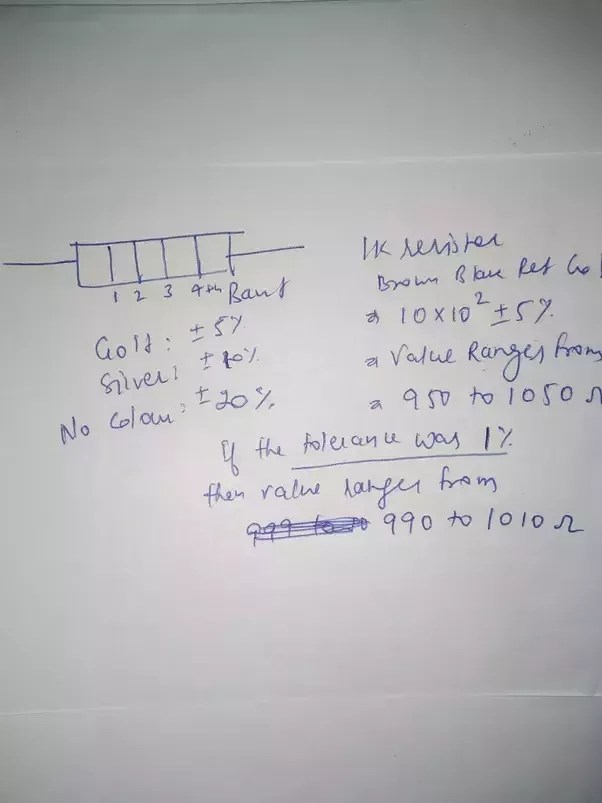 1 2 3 4th Band
Gold: ± 5%
Silver: ± 10%
No Colour: ± 20%
1K resistor
Brown Black Red Go
⇒ 10 × 10² ± 5%
⇒ Value Ranges from
⇒ 950 to 1050 Ω
If the tolerance was 1%
then value ranges from
990 to 1010 Ω